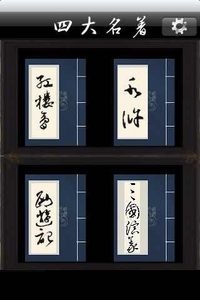 四大名著
红楼梦
水浒
西游记
三國演義